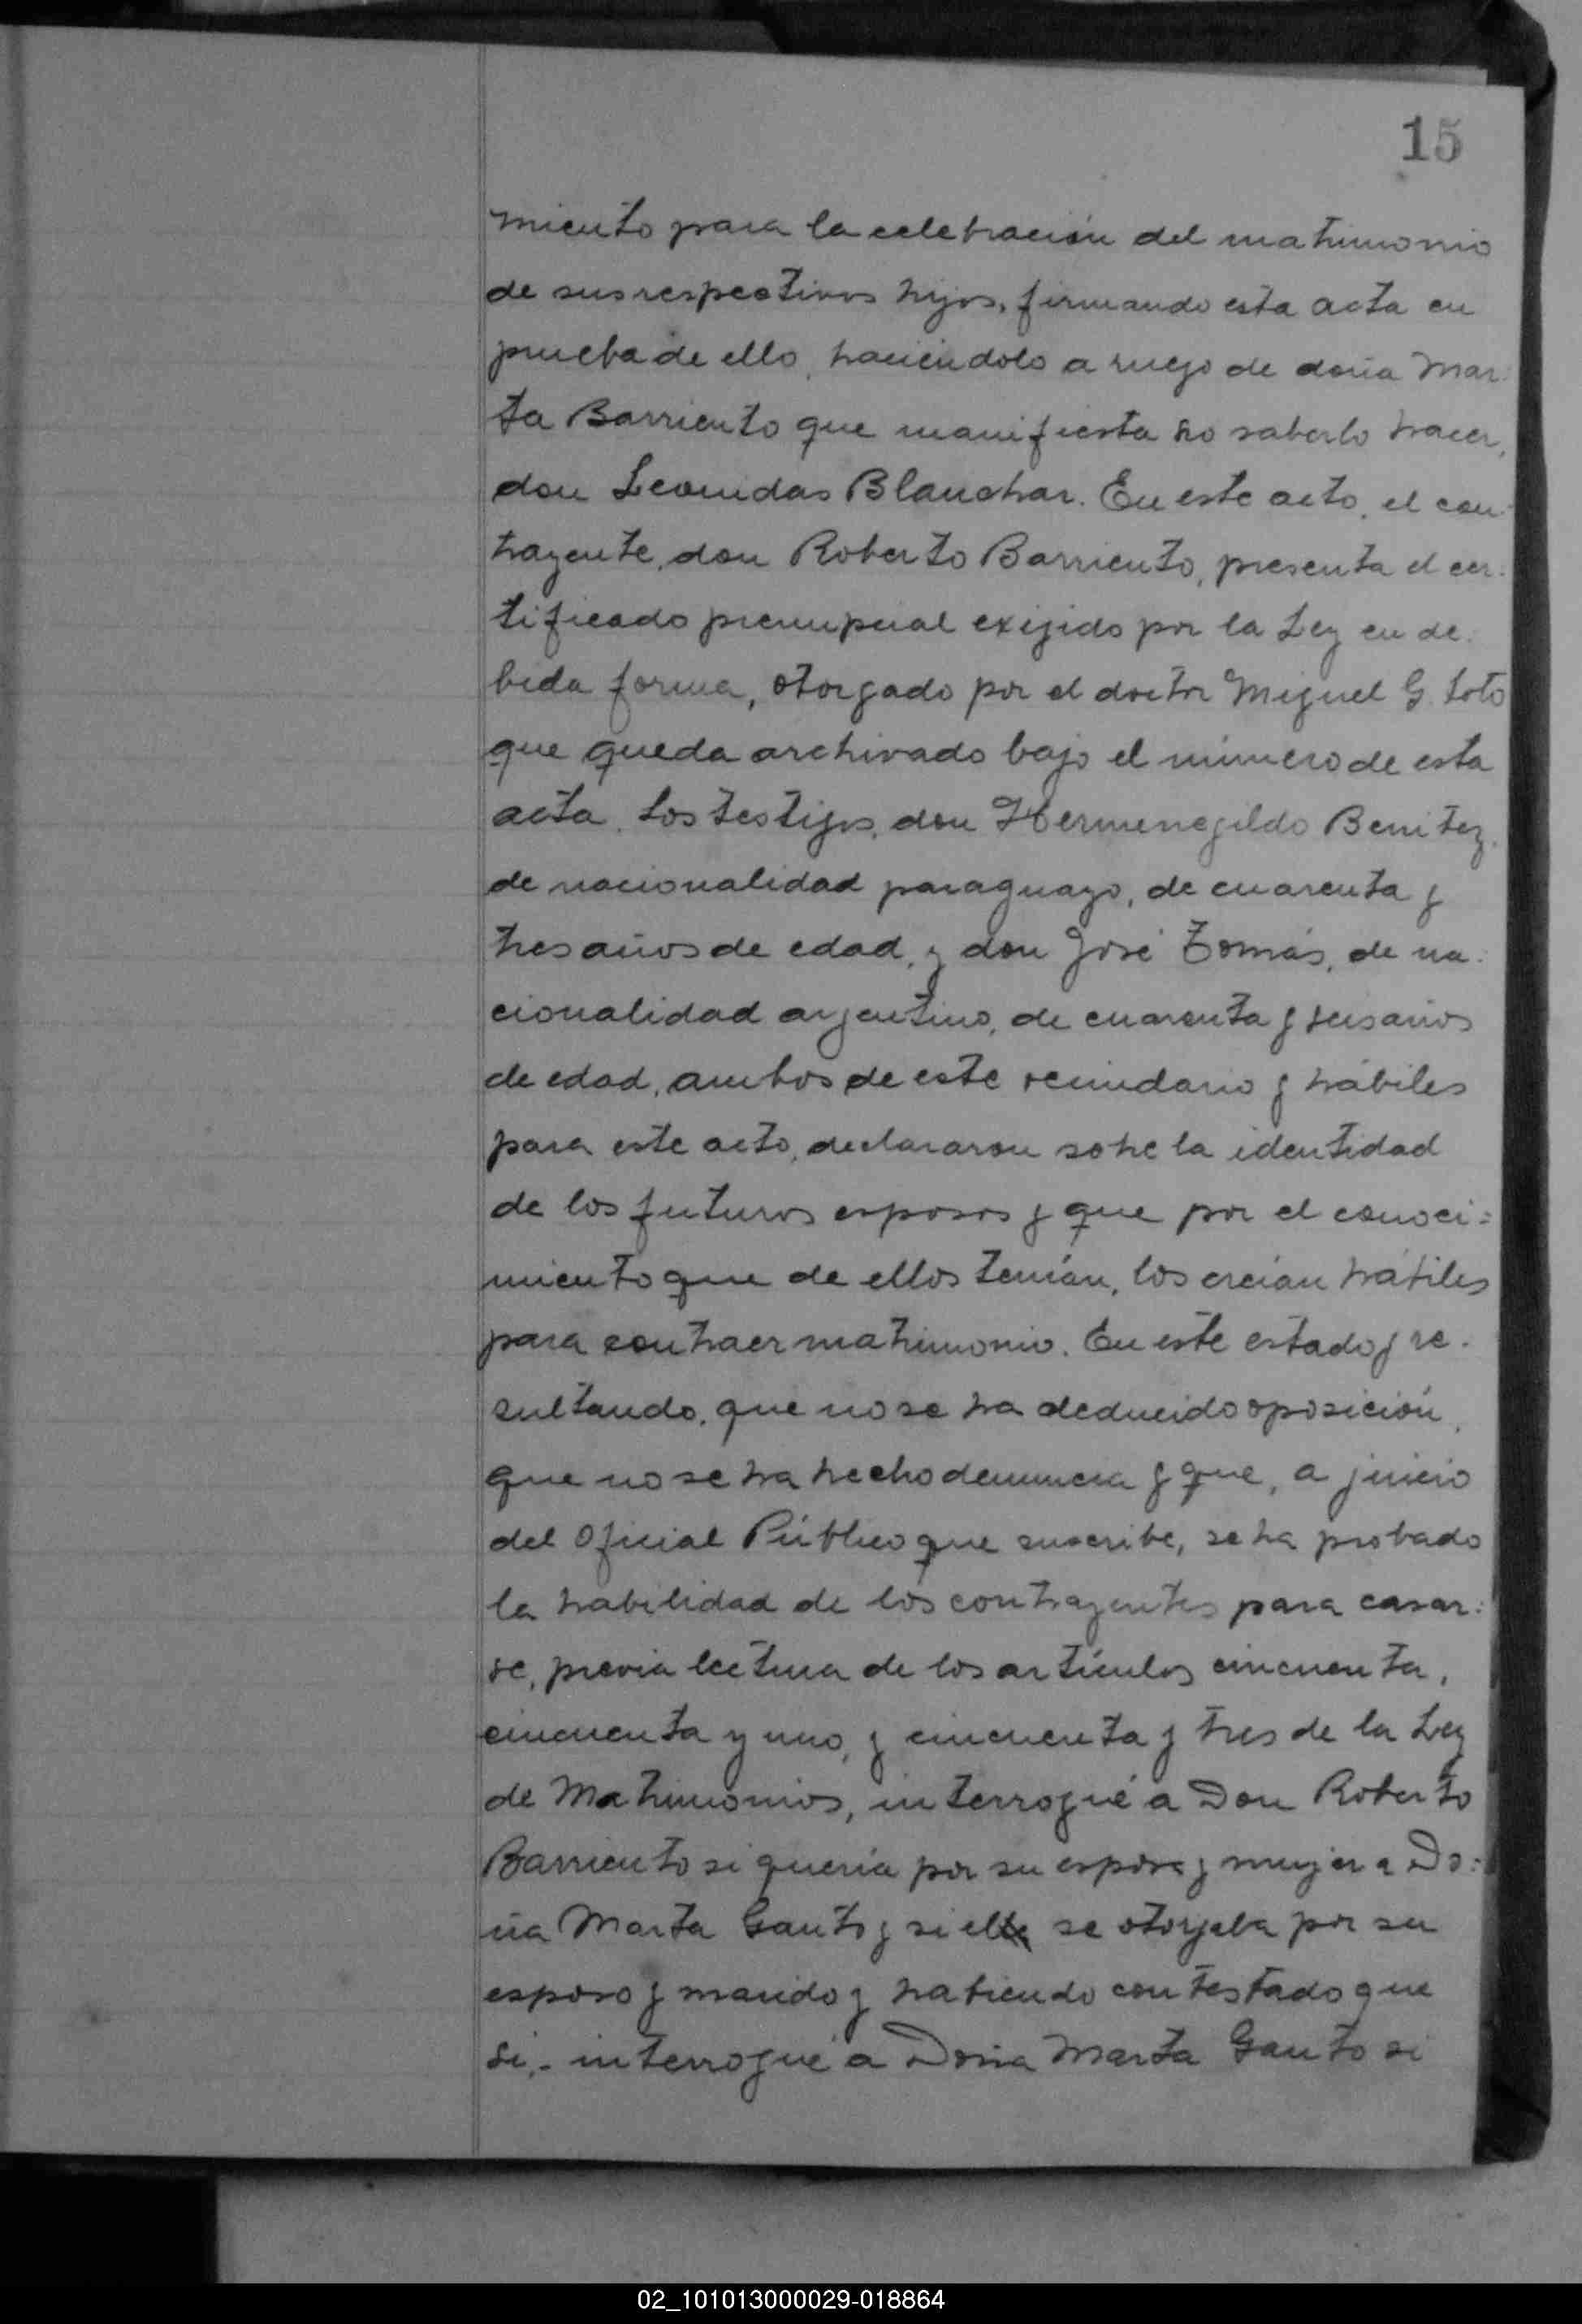 15
miento para la celebración del matrimonio
de sus respectivos hijos, firmando esta acta en
prueba de ello, haciéndolo a ruego de doña Mar:
ta Barriento que manifiesta no saberlo hacer,
don Leonidas Blanchar. En este acto, el con:
trayente, don Roberto Barriento, presenta el cer:
tificado prenupcial exijido por la Ley en de:
bida forma, otorgado por el doctor Miguel G. Soto
que queda archivado bajo el número de esta
acta. Los testigos, don Hermenegildo Benitez,
de nacionalidad paraguayo, de cuarenta y
tres años de edad, y don José Tomás, de na:
cionalidad argentino, de cuarenta y seis años
de edad, ambos de este vecindario y hábiles
para este acto, declararon sobre la identidad
de los futuros esposos y que por el conoci:
miento que de ellos tenían, los creían hábiles
para contraer matrimonio. En este estado y re:
sultando, que no se ha deducido oposición,
que no se ha hecho denuncia y que, a juicio
del Oficial Público que suscribe, se ha probado
la habilidad de los contrayentes para casar:
se, previa lectura de los artículos cincuenta,
cincuenta y uno, y cincuenta y tres de la Ley
de Matrimonios, interrogué a Don Roberto
Barriento si quería por su esposa y mujer a Do:
ña Marta Gauto y si el se otorgaba por su
esposo y marido y habiendo contestado que
si,- interrogué a Doña Marta Gauto si
02_101013000029-018864